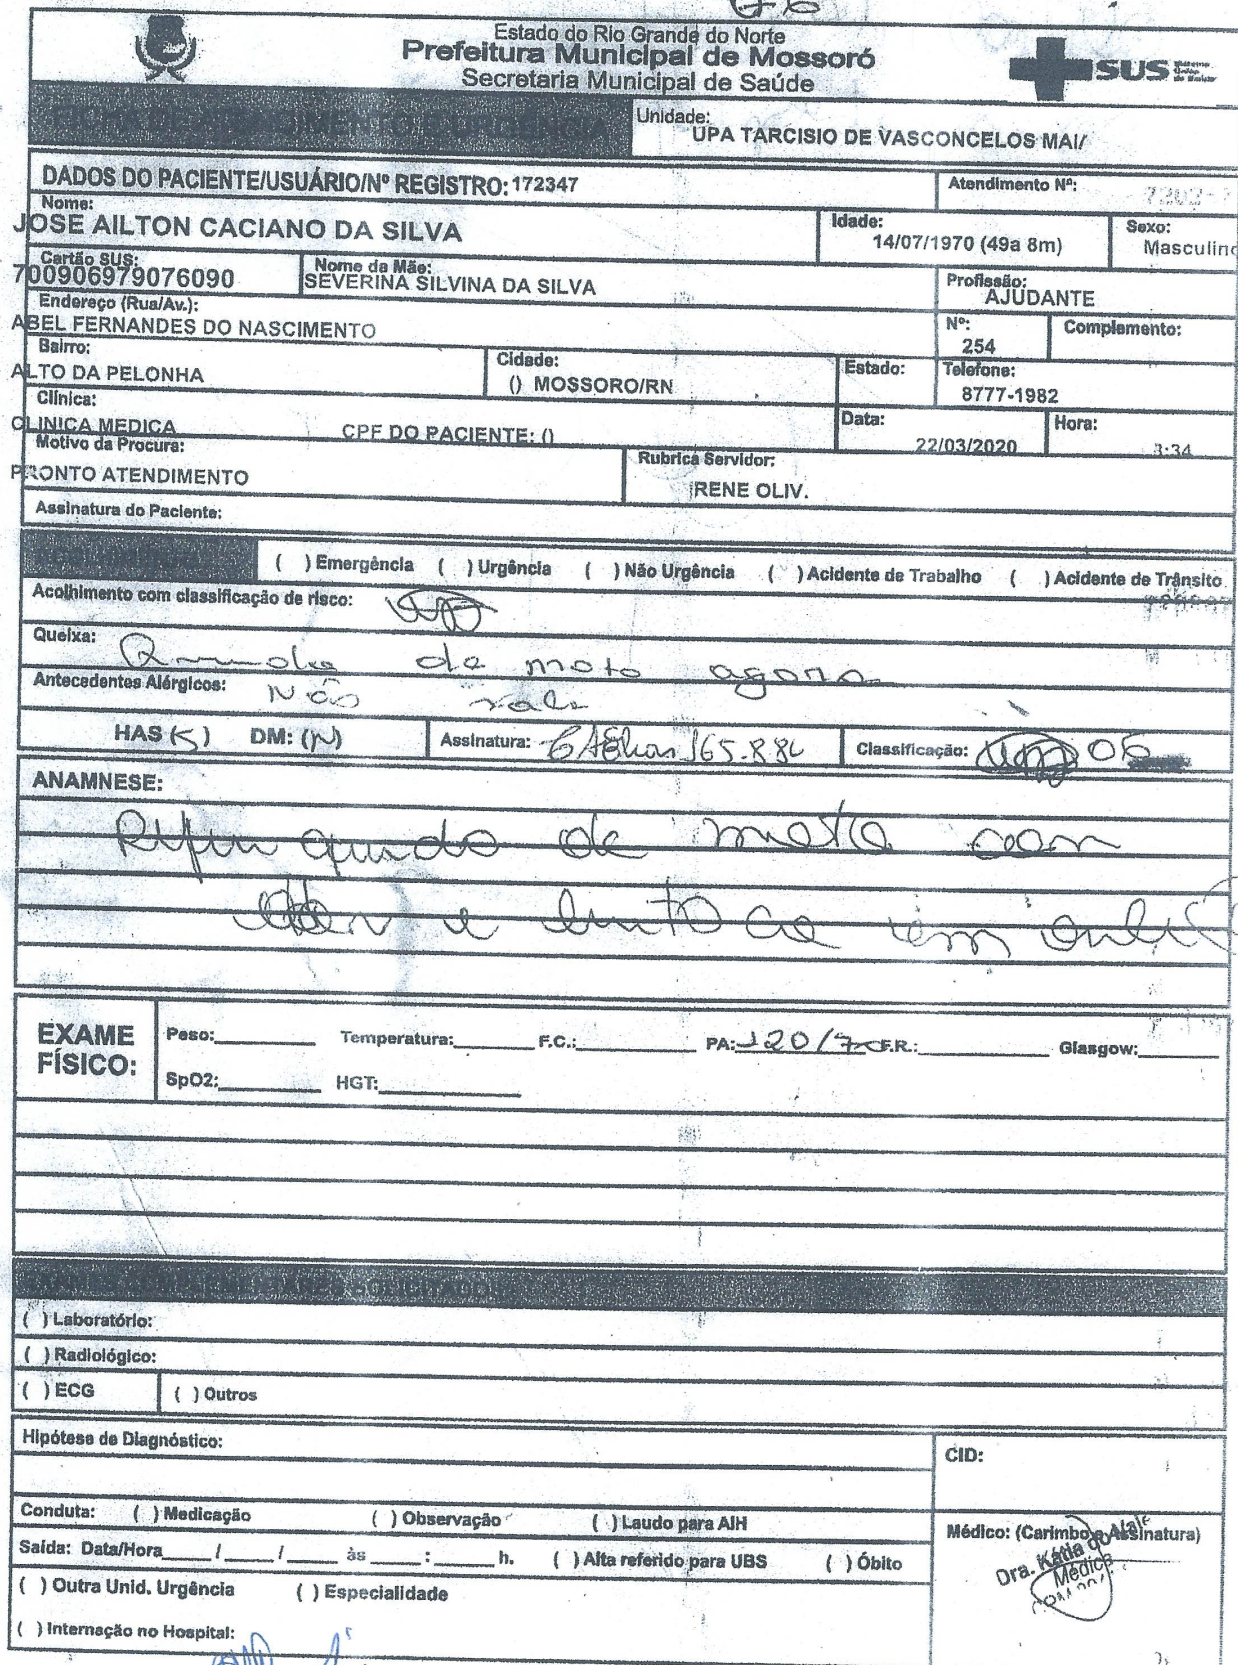 Estado do Rio Grande do Norte
Prefeitura Municipal de Mossoró
Secretaria Municipal de Saúde
SUS Sistema Único de Saúde
Unidade:
UPA TARCISIO DE VASCONCELOS MAI/
DADOS DO PACIENTE/USUÁRIO/Nº REGISTRO: 172347
Atendimento Nº:
Nome:
JOSE AILTON CACIANO DA SILVA
Idade:
14/07/1970 (49a 8m)
Sexo:
Masculino
Cartão SUS:
700906979076090
Nome da Mãe:
SEVERINA SILVINA DA SILVA
Profissão:
AJUDANTE
Endereço (Rua/Av.):
ABEL FERNANDES DO NASCIMENTO
Nº:
254
Complemento:
Bairro:
ALTO DA PELONHA
Cidade:
() MOSSORO/RN
Estado:
Telefone:
8777-1982
Clínica:
CLINICA MEDICA
CPF DO PACIENTE: ()
Data:
22/03/2020
Hora:
3:34
Motivo da Procura:
PRONTO ATENDIMENTO
Rubrica Servidor:
RENE OLIV.
Assinatura do Paciente:
( ) Emergência ( ) Urgência ( ) Não Urgência ( ) Acidente de Trabalho ( ) Acidente de Trânsito
Acolhimento com classificação de risco:
Queixa:
de moto agora
Antecedentes Alérgicos:
Não sabe
HAS (S) DM: (N)
Assinatura:
Classificação:
ANAMNESE:
de moto com
e em
EXAME FÍSICO:
Peso: Temperatura: F.C.: PA: 120/7 F.R.: Glasgow:
SpO2: HGT:
( ) Laboratório:
( ) Radiológico:
( ) ECG ( ) Outros
Hipótese de Diagnóstico:
CID:
Conduta: ( ) Medicação ( ) Observação ( ) Laudo para AIH
Médico: (Carimbo e Assinatura)
Dra. Kátia do
Médica
Saída: Data/Hora / / às : h. ( ) Alta referido para UBS ( ) Óbito
( ) Outra Unid. Urgência ( ) Especialidade
( ) Internação no Hospital: